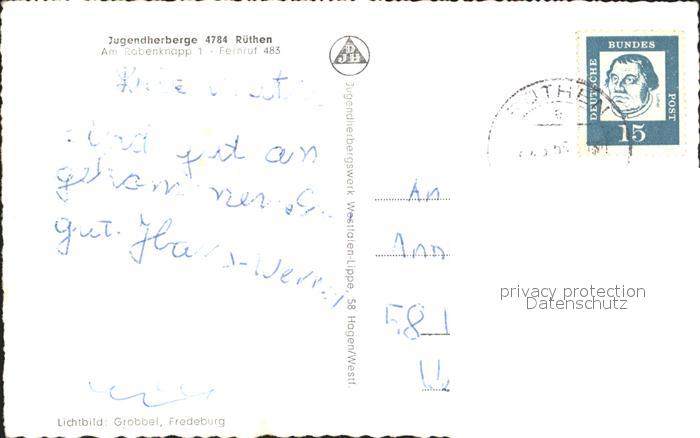 Jugendherberge 4784 Rüthen
Am Rabenknapp 1 - Fernruf 483
sind gut an
gekommen.
gut. Hans-Werner
Lichtbild: Grobbel, Fredeburg
Jugendherbergswerk Westfalen-Lippe, 58 Hagen/Westf.
DEUTSCHE
BUNDES
POST
15
RÜTHEN
An
Ann
58
privacy protection
Datenschutz